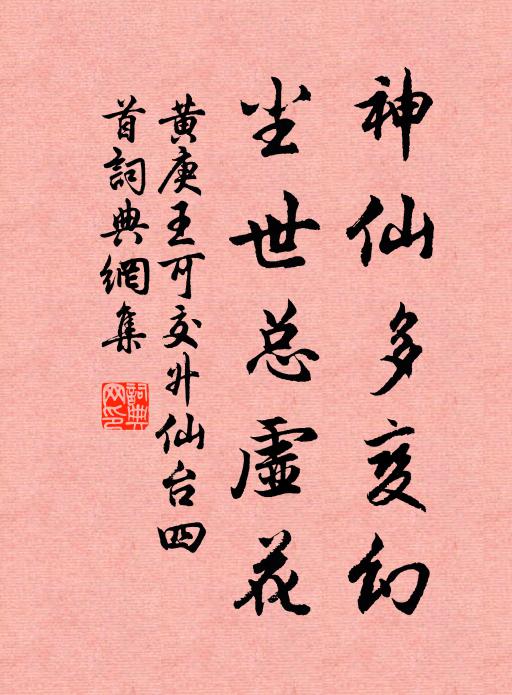 神仙多变幻
尘世总虚花
黄庚王可交升仙台四
首词典網集
詞典网印